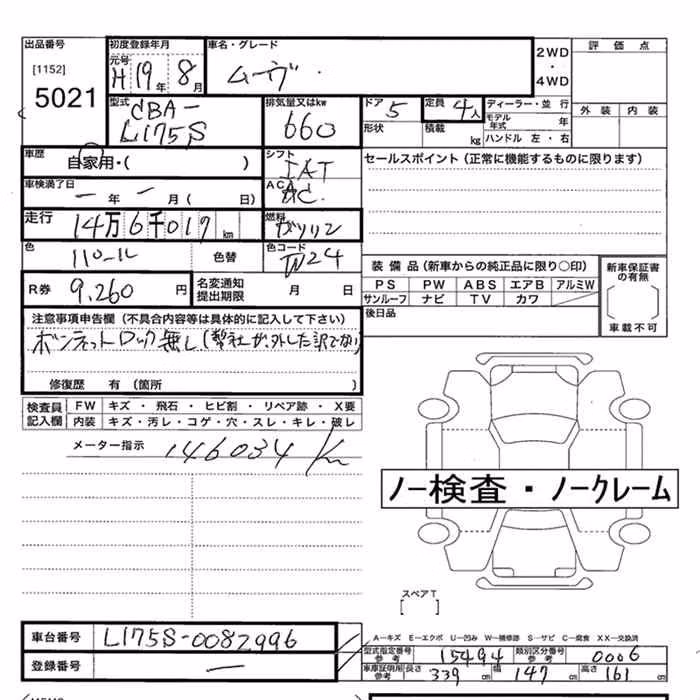 出品番号 初度登録年月 車名・グレード 2WD・4WD 評価点
[1152] 元号
5021 H 19年 8月 ムーヴ
型式 CBA-L175S 排気量又はkw 660 ドア 5 定員 4人 ディーラー・並行 外装 内装
形状 積載 kg モデル年式 年
ハンドル 左・右
車歴 自家用・( ) シフト IAT セールスポイント(正常に機能するものに限ります)
車検満了日 ー年 ー月( 日) AC AC
走行 14万6千017km 燃料 ガソリン
色 パール 色替 色コード W24
装備品(新車からの純正品に限り○印) 新車保証書の有無
R券 9,260円 名変通知提出期限 月 日 PS PW ABS エアB アルミW
サンルーフ ナビ TV カワ
後日品 車載不可
注意事項申告欄(不具合内容等は具体的に記入して下さい)
ボンネットロック無し(弊社が外した訳でない)
修復歴 有(箇所 )
検査員記入欄 FW キズ・飛石・ヒビ割・リペア跡・X要
内装 キズ・汚レ・コゲ・穴・スレ・キレ・破レ
メーター指示 146034 Km
ノー検査・ノークレーム
スペアT
[ ]
車台番号 L175S-0082996 A-キズ E-エクボ U-凹み W-補修跡 S-サビ C-腐食 XX-交換済
型式指定番号参考 15494 類別区分番号参考 0006
登録番号 ー 車庫証明用参考 長さ 339cm 幅 147cm 高さ 161cm